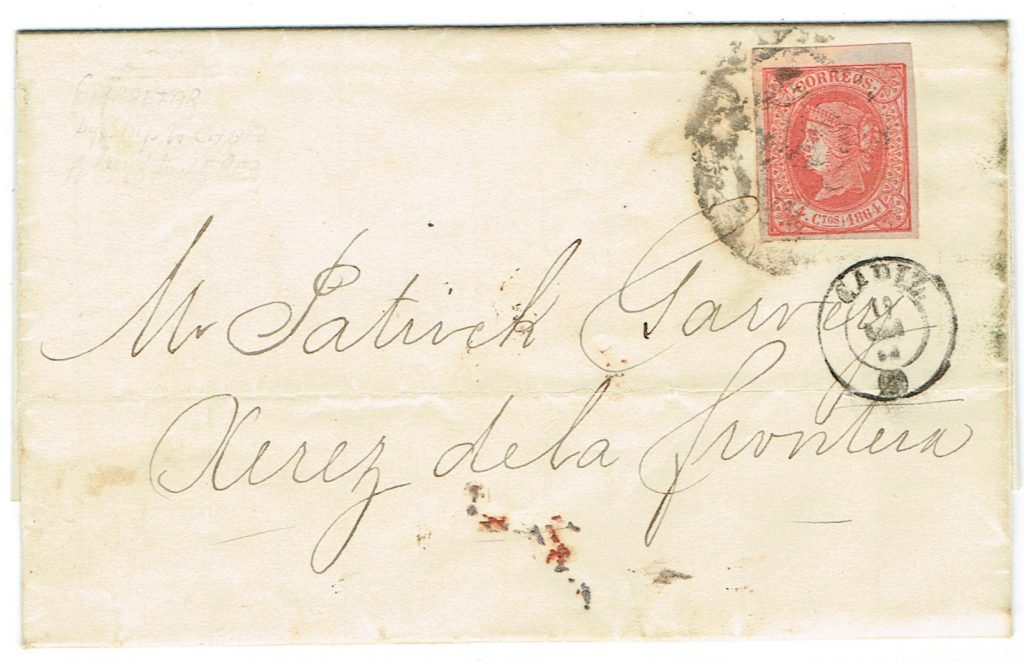 GIBRALTAR
CORREOS
4 CTOS; 1864
CADIZ
Mr Patrick Garvey
Xerez de la frontera